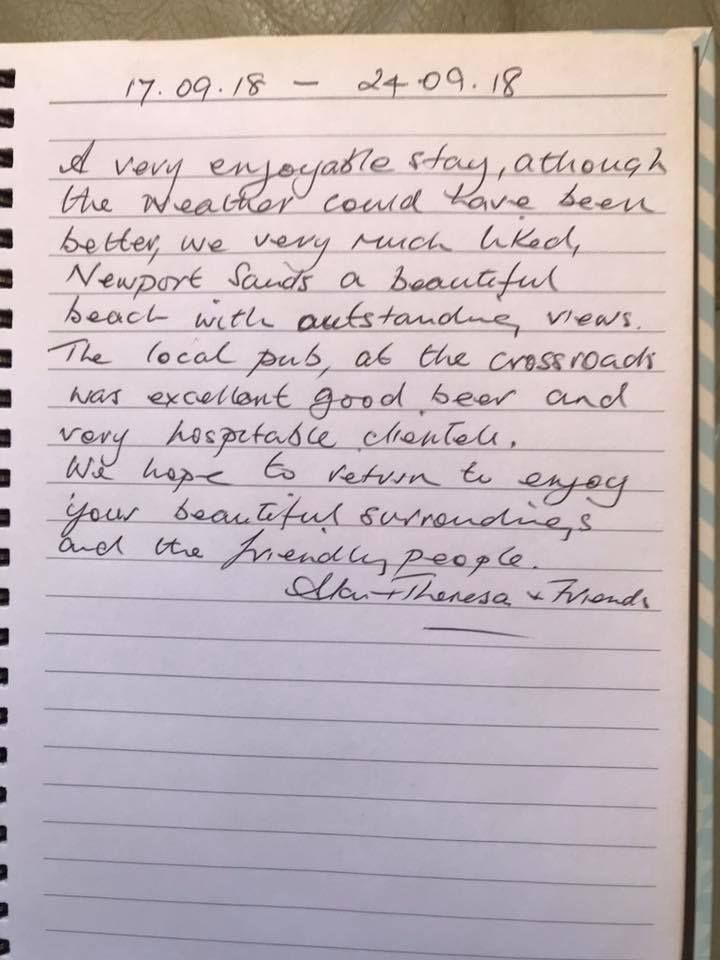 17.09.18 – 24.09.18
A very enjoyable stay, athough
the weather could have been
better, we very much liked,
Newport Sands a beautiful
beach with outstanding views.
The local pub, at the crossroads
was excellent good beer and
very hospitable clientele.
We hope to return to enjoy
your beautiful surroundings
and the friendly people.
Alan + Theresa + Friends